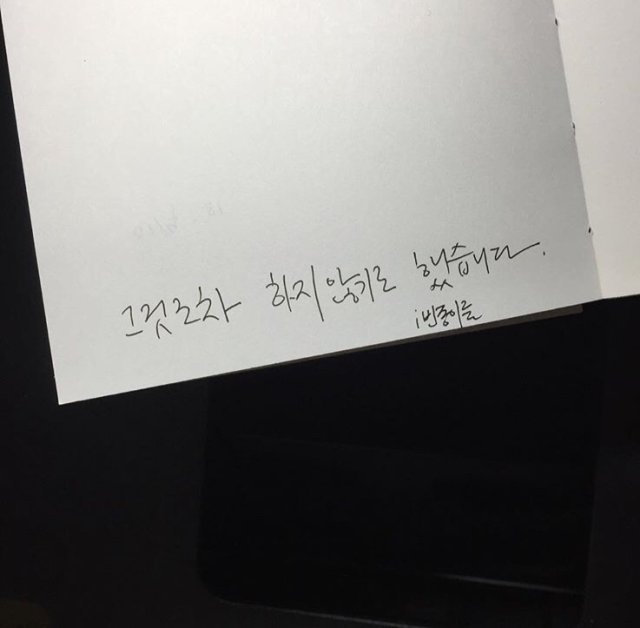 그것조차 하지 않기로 했습니다.
빈종이를